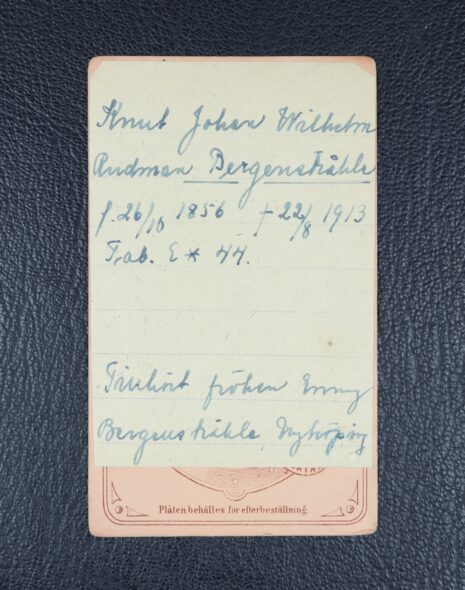 Knut Johan Wilhelm
Rudman Bergenstråhle
f. 26/10 1856 † 22/8 1913
Tab. E * 44.
Tillhört fröken Emmy
Bergenstråhle, Nyköping
Plåten behålles för efterbeställning